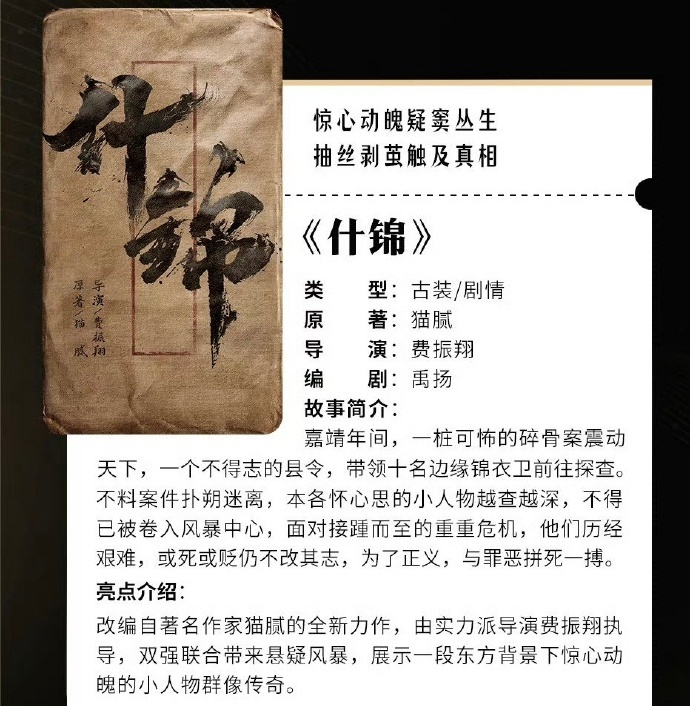 什锦
导演/费振翔
原著/猫腻
惊心动魄疑窦丛生
抽丝剥茧触及真相
《什锦》
类 型：古装/剧情
原 著：猫腻
导 演：费振翔
编 剧：禹扬
故事简介：
嘉靖年间，一桩可怖的碎骨案震动
天下，一个不得志的县令，带领十名边缘锦衣卫前往探查。
不料案件扑朔迷离，本各怀心思的小人物越查越深，不得
已被卷入风暴中心，面对接踵而至的重重危机，他们历经
艰难，或死或贬仍不改其志，为了正义，与罪恶拼死一搏。
亮点介绍：
改编自著名作家猫腻的全新力作，由实力派导演费振翔执
导，双强联合带来悬疑风暴，展示一段东方背景下惊心动
魄的小人物群像传奇。